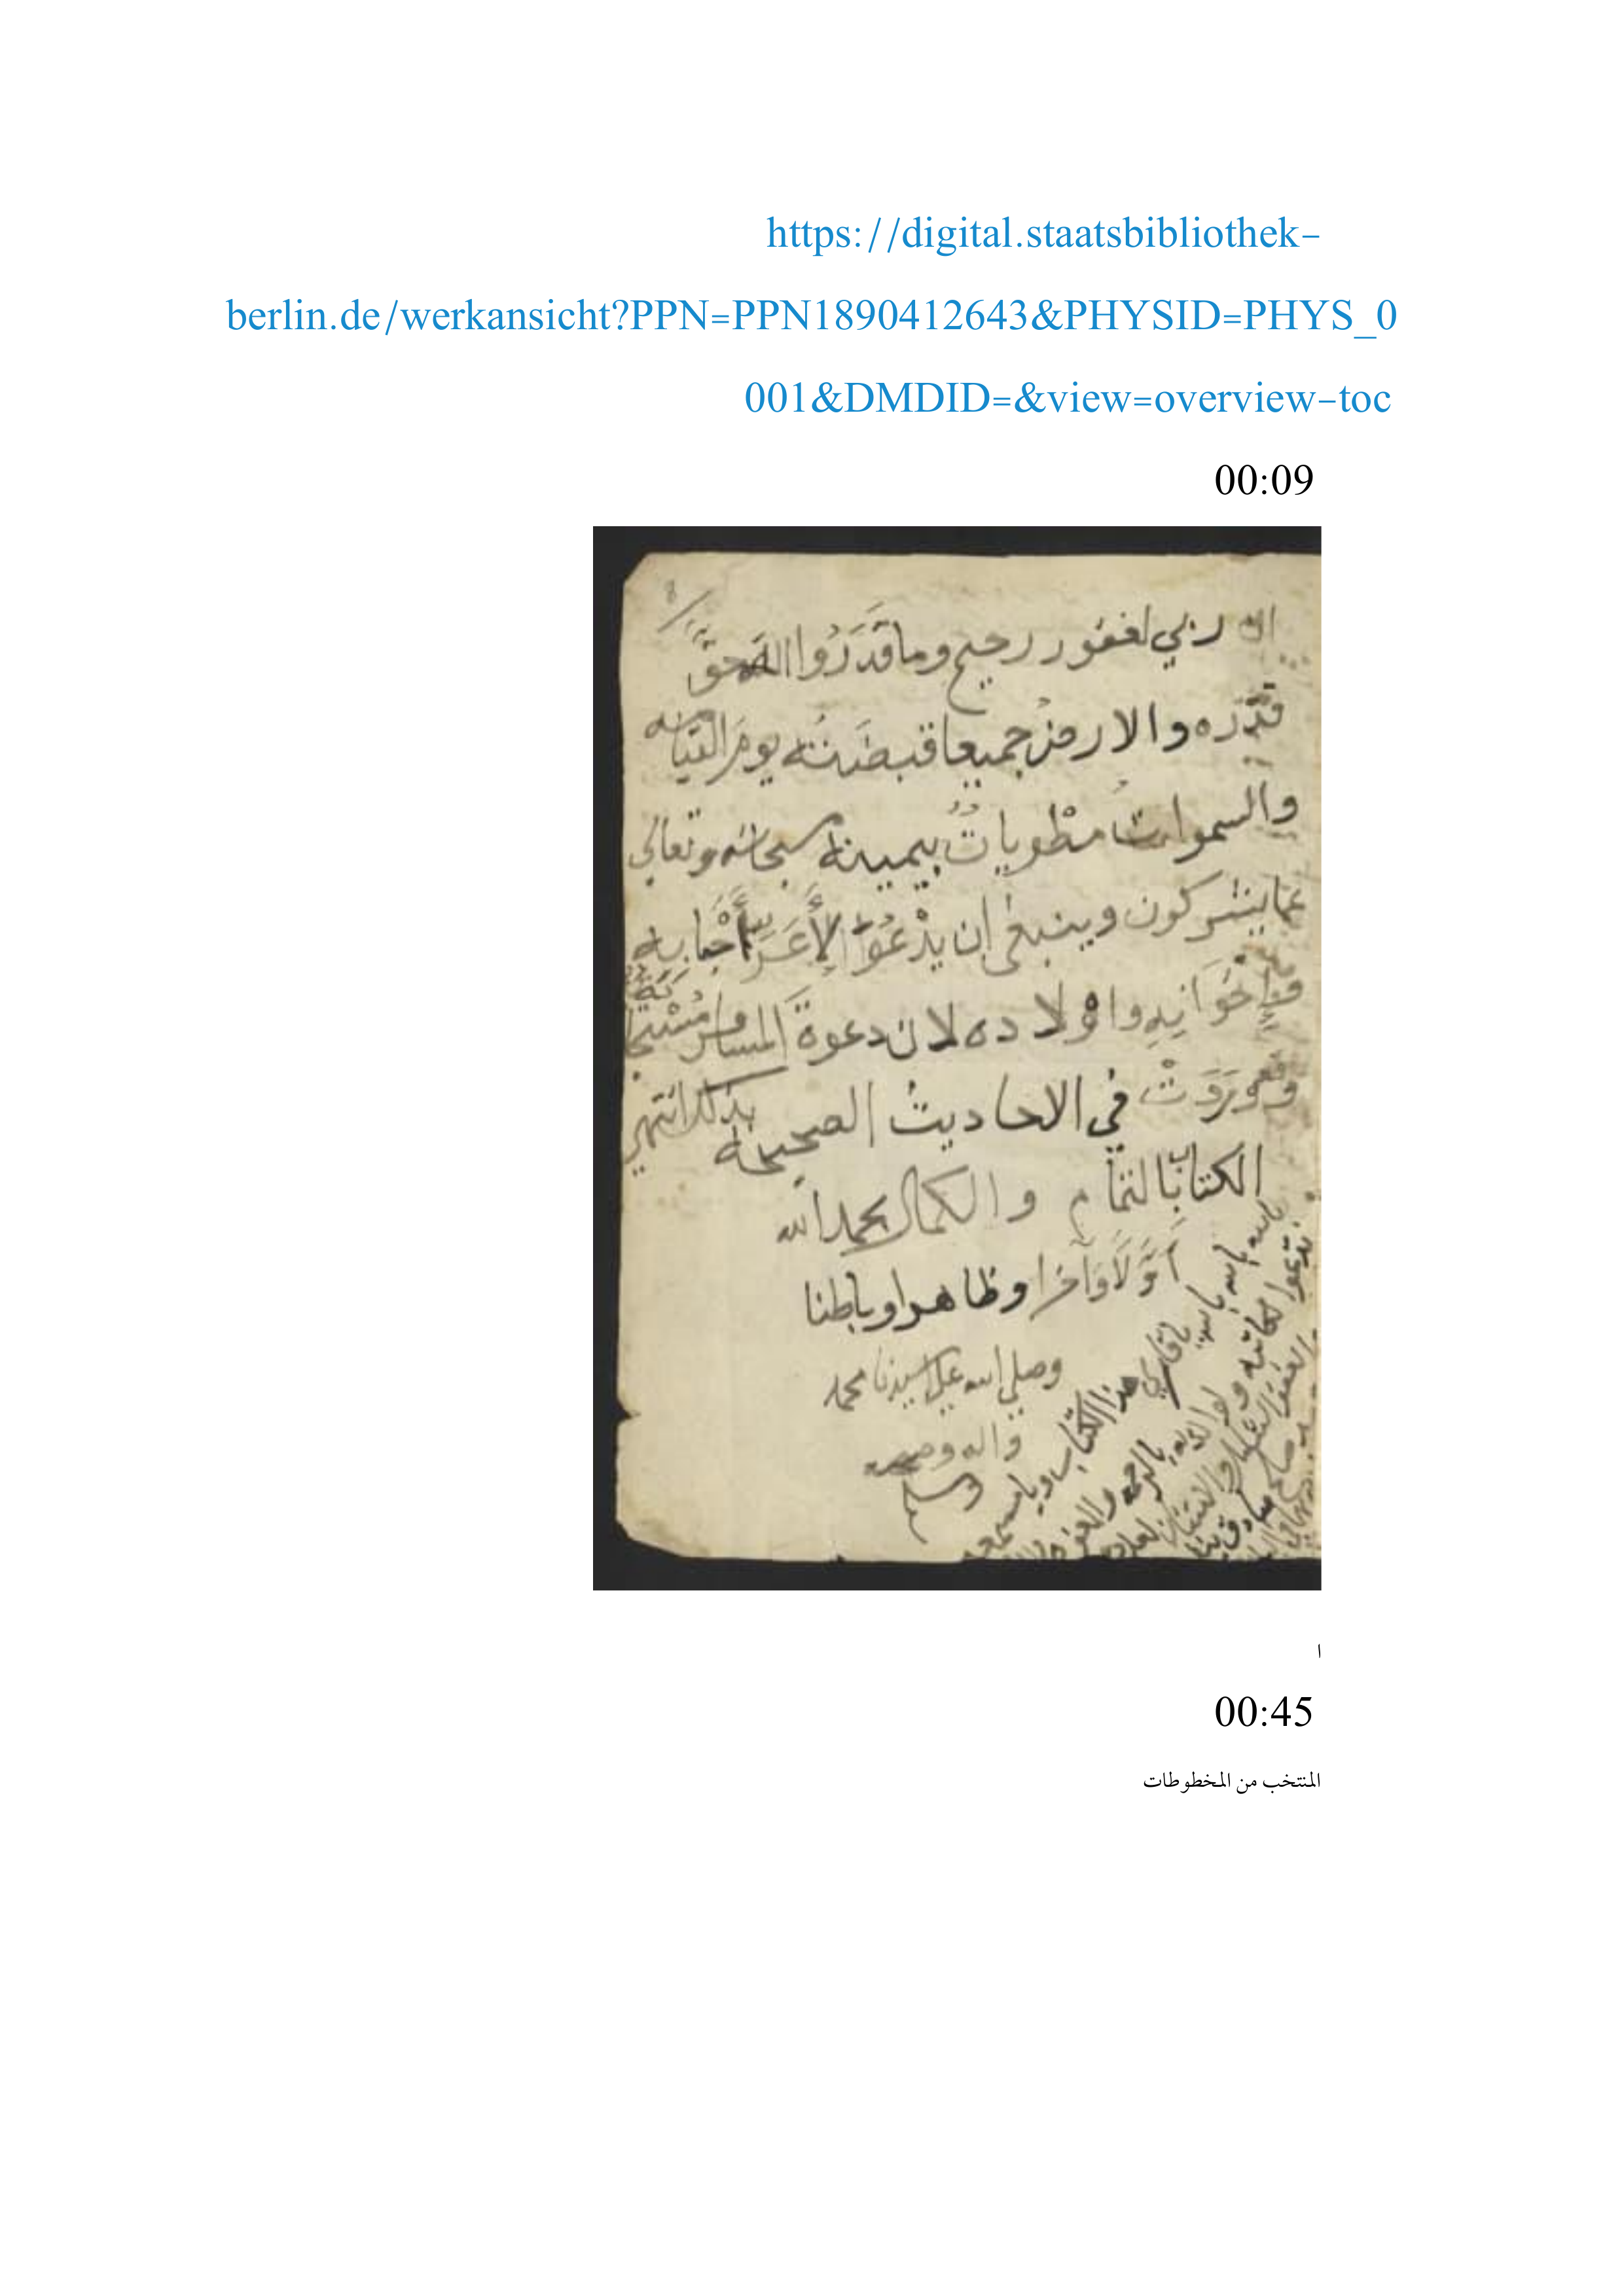 https://digital.staatsbibliothek-
berlin.de/werkansicht?PPN=PPN1890412643&PHYSID=PHYS_0
001&DMDID=&view=overview-toc
00:09
ان ربي لغفور رحيم وما قَدَرُوا اللهَ حقَّ
قَدْرِه والارض جميعا قبضَتُه يومَ القيامه
والسمواتُ مطْوياتٌ بيمينه سبحانه وتعالى
عما يشركون وينبغى ان يدْعُوَ لِأَعَزِّ أَحْبابه
وإخْوَانِهِ واولاده لان دعوةَ المسافر مُسْتجابَة
وقد وَرَدَتْ في الاحاديث الصحيحة بذلك انتهى
الكتاب بالتمام والكمال بحمد الله
أَوَّلًا وَآخرا وظاهرا وباطنا
وصلى الله على سيدنا محمد
واله وصحبه
وسلم
بالله بالله بالله يا قاري هذا الكتاب ويا مستمعه
ا
00:45
المنتخب من المخطوطات